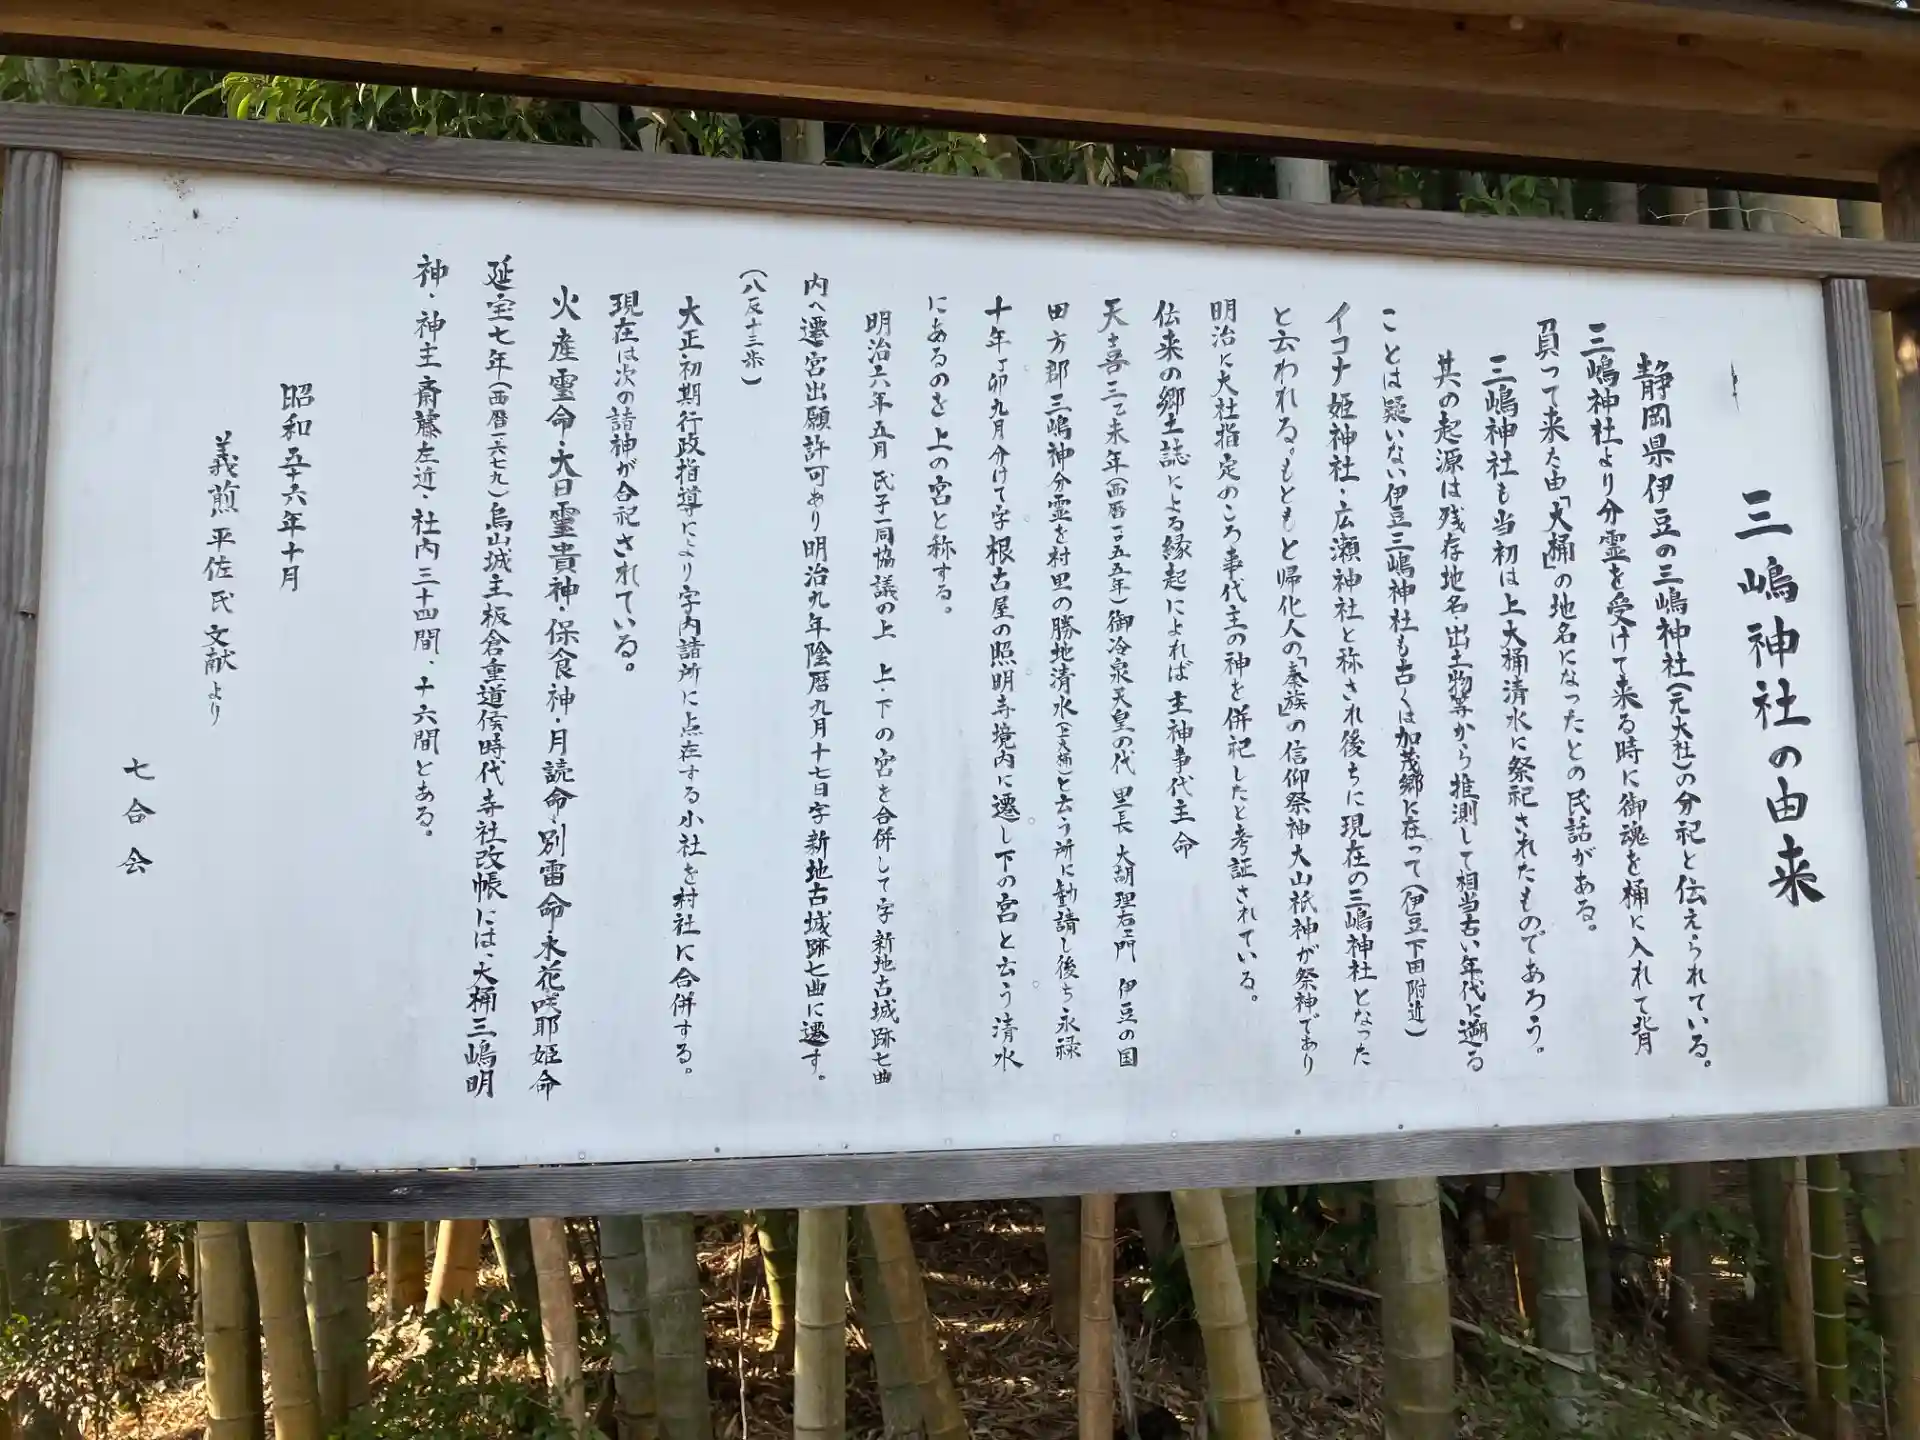 三嶋神社の由来
静岡県伊豆の三嶋神社(元大社)の分祀と伝えられている。
三嶋神社より分霊を受けて来る時に御魂を桶に入れて背
負って来た由「大桶」の地名になったとの民話がある。
三嶋神社も当初は上大桶清水に祭祀されたものであろう。
其の起源は残存地名・出土物等から推測して相当古い年代に遡る
ことは疑いない伊豆三嶋神社も古くは加茂郷に在って(伊豆下田附近)
イコナ姫神社・広瀬神社と称され後ちに現在の三嶋神社となった
と云われる。もともと帰化人の「秦族」の信仰祭神大山祇神が祭神であり
明治に大社指定のころ事代主の神を併祀したと考証されている。
伝来の郷土誌による縁起によれば 主神事代主命
天喜三乙未年(西暦一〇五五年)御冷泉天皇の代 里長 大胡理右門 伊豆の国
田方郡三嶋神分霊を村里の勝地清水(上大桶)と云う所に勧請し後ち永禄
十年丁卯九月分けて字根古屋の照明寺境内に遷し下の宮と云う清水
にあるのを上の宮と称する。
明治六年五月 氏子一同協議の上 上・下の宮を合併して字新地古城跡七曲
内へ遷宮出願許可あり明治九年陰暦九月十七日字新地古城跡七曲に遷す。
(八反十三歩)
大正初期行政指導により字内諸所に点在する小社を村社に合併する。
現在は次の諸神が合祀されている。
火産霊命・大日孁貴神・保食神・月読命・別雷命・木花咲耶姫命
延宝七年(西暦一六七九)烏山城主板倉重道侯時代寺社改帳には、大桶三嶋明
神・神主斎藤左近・社内三十四間、十六間とある。
昭和五十六年十月
義煎平佐氏文献より
七合会